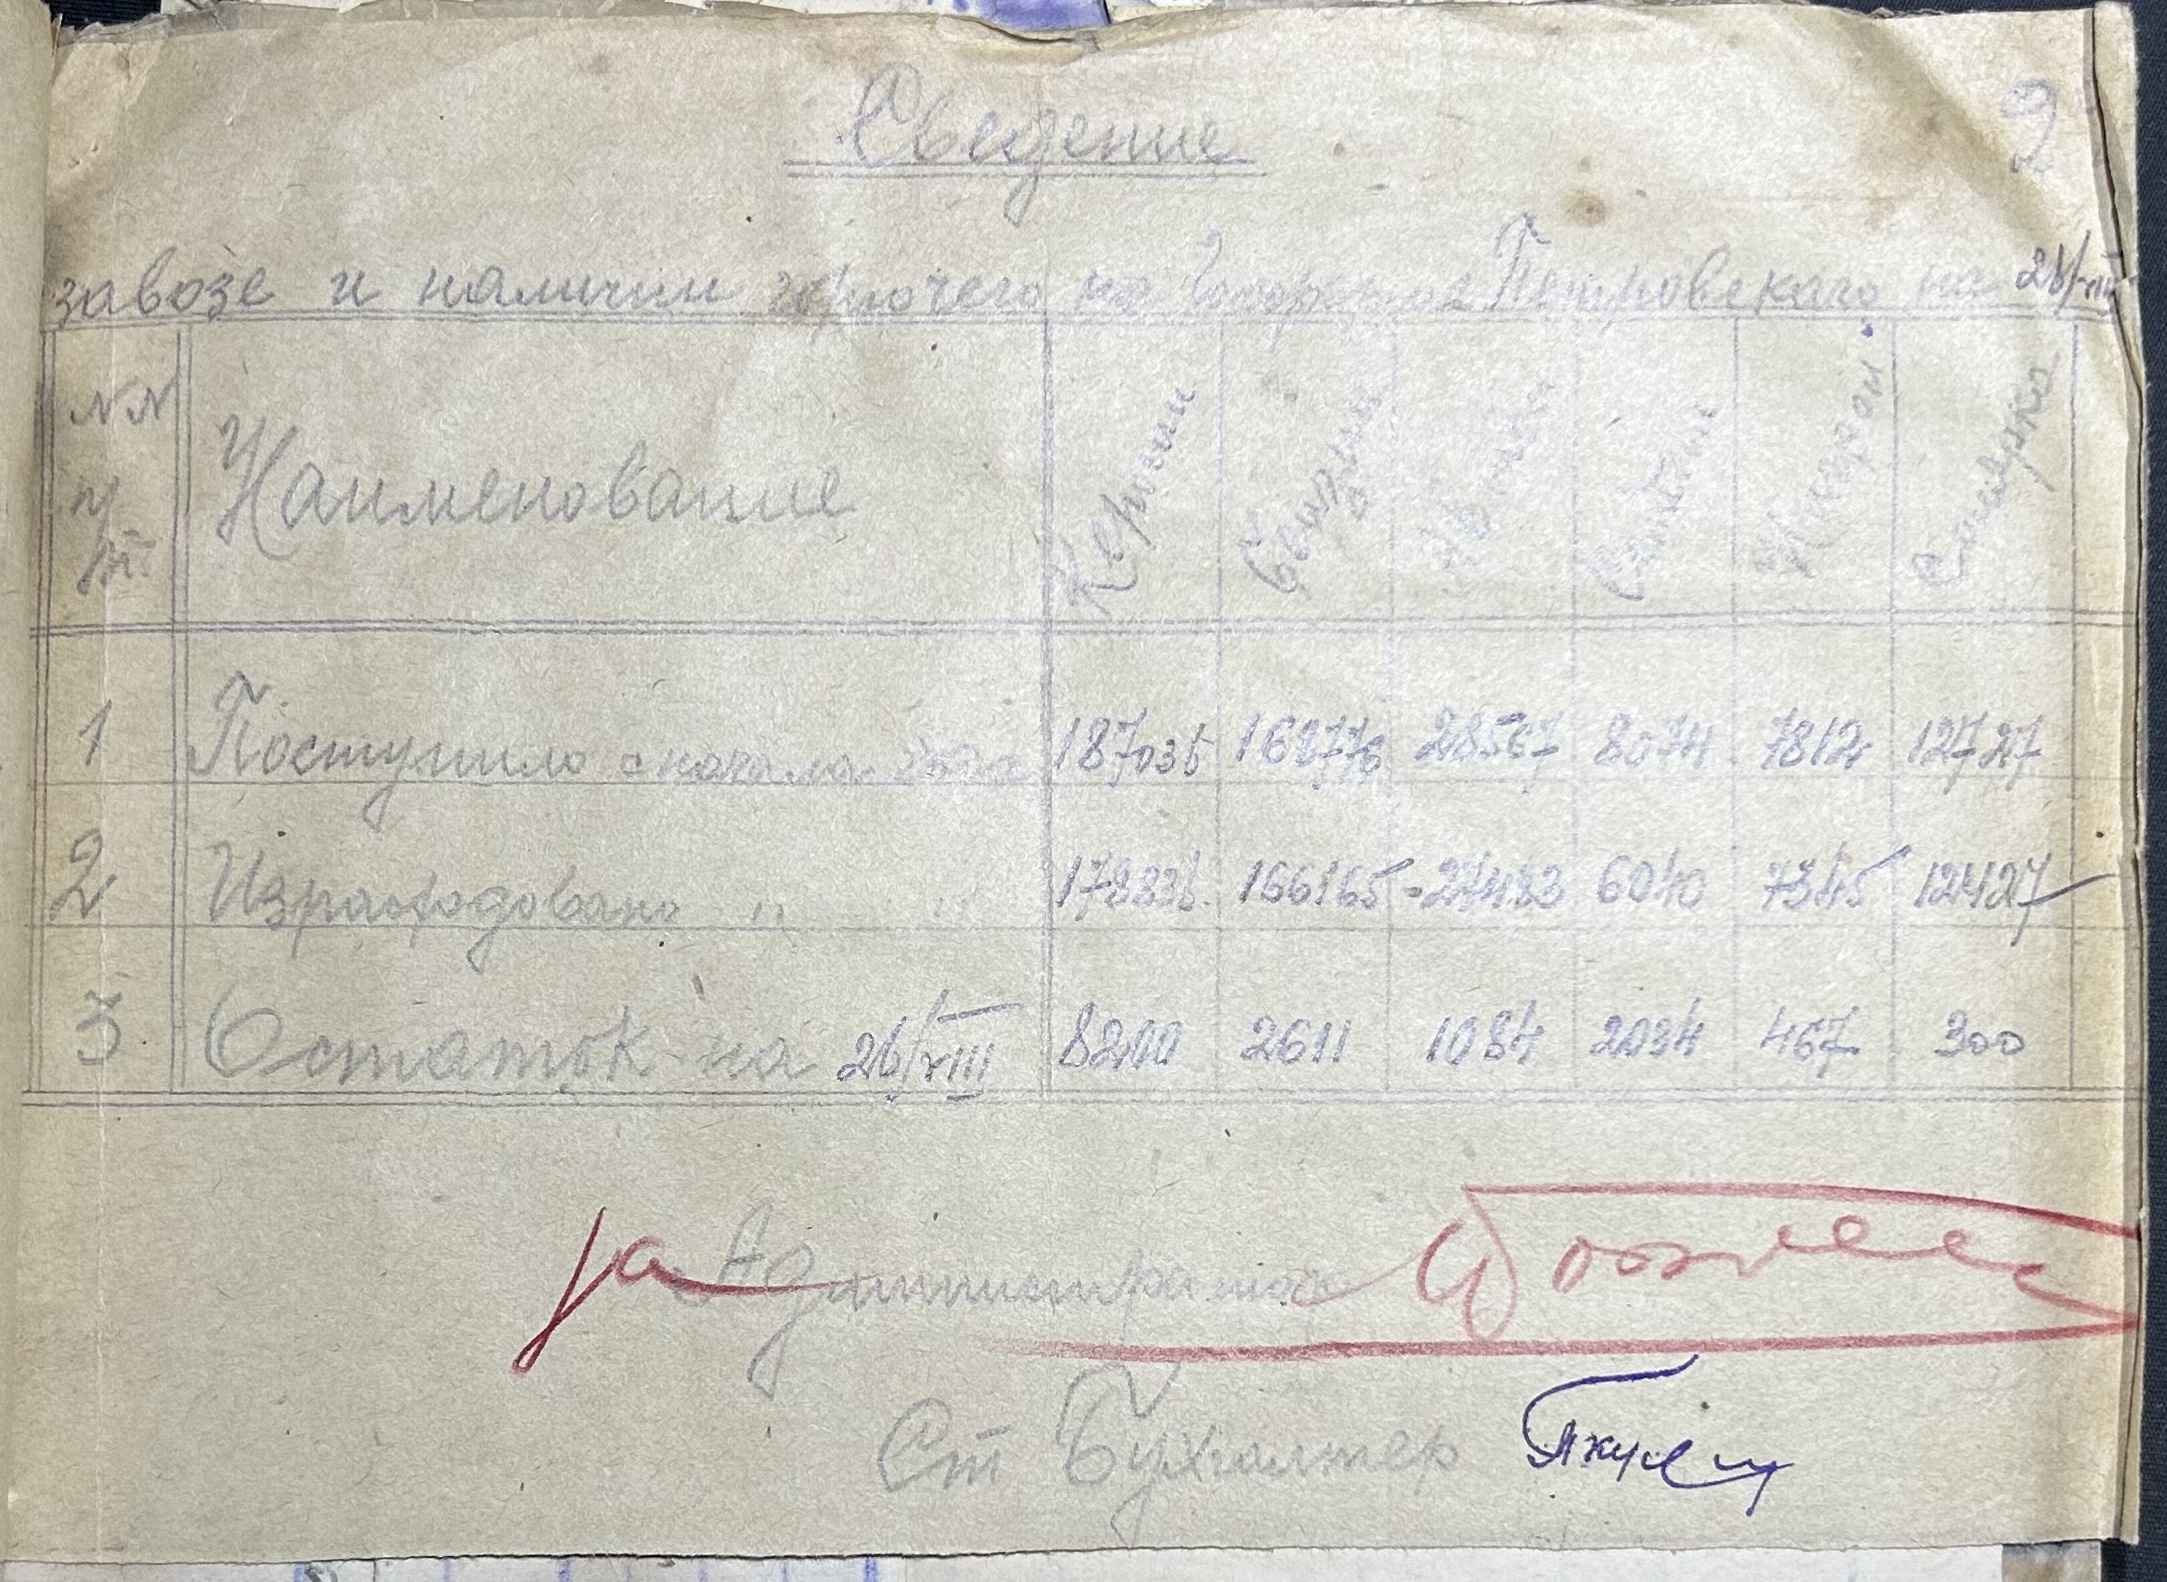 2
Сведение
завозе и наличии горючего на Петровского на 26/VIII
NN п/п. Наименование Керосин бензин Автол Солидол Нигрол Смазка
1 Поступило с начала года 187035 168776 28567 8074 7812 12727
2 Израсходовано " " 178835 166165 27483 6040 7345 12427
3 Остаток на 26/VIII 8200 2611 1084 2034 467 300
за Администратор
Ст Бухгалтер